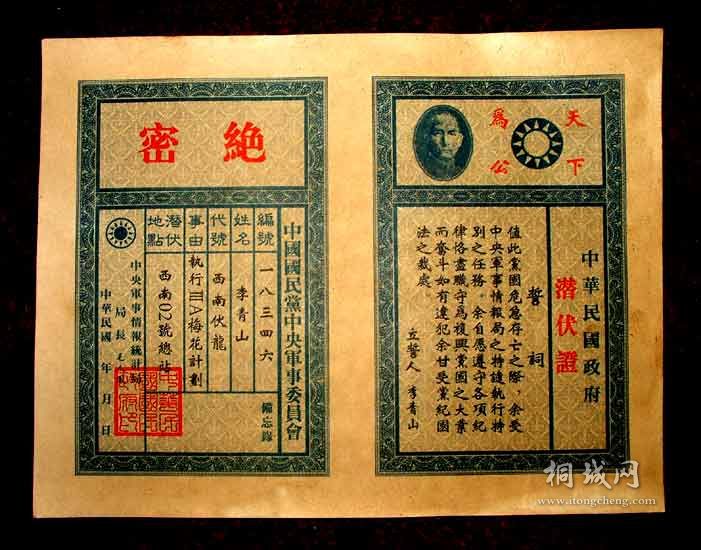 天下
爲公
中華民國政府
潛伏證
誓祠
值此黨國危急存亡之際，余受
中央軍事情報局之特諉執行特
別之任務。余自愿遵守各項紀
律恪盡職守爲復興黨國之大業
而奮斗如有違犯余甘受黨紀國
法之裁處。
立誓人 李青山
絕密
中國國民黨中央軍事委員會
備忘錄
編號 一八三四六
姓名 李青山
代號 西南伏龍
事由 執行IIIA梅花計劃
潛伏地點 西南02號總站
中央軍事情報統計局
局長
中華民國 年 月 日
桐城网
www.atongcheng.com